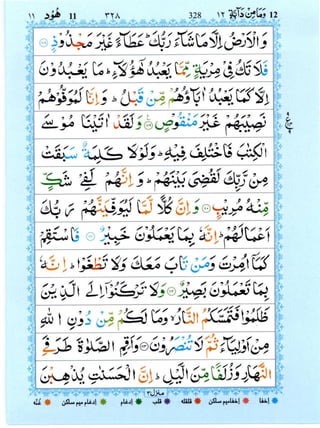 ١١ هُوْد 11 ٣٢٨ 328 وَمَا مِنْ دَآبَّةٍ ١٢ 12
وَالْاَرْضُ اِلَّا مَا شَآءَ رَبُّكَ ؕ عَطَآءً غَيْرَ مَجْذُوْذٍ ﴿۱۰۸﴾
فَلَا تَكُ فِيْ مِرْيَةٍ مِّمَّا يَعْبُدُ هٰۤؤُلَآءِ ؕ مَا يَعْبُدُوْنَ
اِلَّا كَمَا يَعْبُدُ اٰبَآؤُهُمْ مِّنْ قَبْلُ ؕ وَاِنَّا لَمُوَفُّوْهُمْ
نَصِيْبَهُمْ غَيْرَ مَنْقُوْصٍ ﴿۱۰۹﴾ وَلَقَدْ اٰتَيْنَا مُوْسَى
الْكِتٰبَ فَاخْتُلِفَ فِيْهِ ؕ وَلَوْلَا كَلِمَةٌ سَبَقَتْ
مِنْ رَّبِّكَ لَقُضِيَ بَيْنَهُمْ ؕ وَاِنَّهُمْ لَفِيْ شَكٍّ
مِّنْهُ مُرِيْبٍ ﴿۱۱۰﴾ وَاِنَّ كُلًّا لَّمَّا لَيُوَفِّيَنَّهُمْ رَبُّكَ
اَعْمَالَهُمْ ؕ اِنَّهٗ بِمَا يَعْمَلُوْنَ خَبِيْرٌ ﴿۱۱۱﴾ فَاسْتَقِمْ
كَمَاۤ اُمِرْتَ وَمَنْ تَابَ مَعَكَ وَلَا تَطْغَوْا ؕ اِنَّهٗ
بِمَا تَعْمَلُوْنَ بَصِيْرٌ ﴿۱۱۲﴾ وَلَا تَرْكَنُوْۤا اِلَى الَّذِيْنَ
ظَلَمُوْا فَتَمَسَّكُمُ النَّارُ ۙ وَمَا لَكُمْ مِّنْ دُوْنِ اللّٰهِ
مِنْ اَوْلِيَآءَ ثُمَّ لَا تُنْصَرُوْنَ ﴿۱۱۳﴾ وَاَقِمِ الصَّلٰوةَ طَرَفَيِ
النَّهَارِ وَزُلَفًا مِّنَ الَّيْلِ ؕ اِنَّ الْحَسَنٰتِ يُذْهِبْنَ
منزل ٣
اخفا اخفا ميم ساكن قلقله قلب ادغام ادغام ميم ساكن غنّه